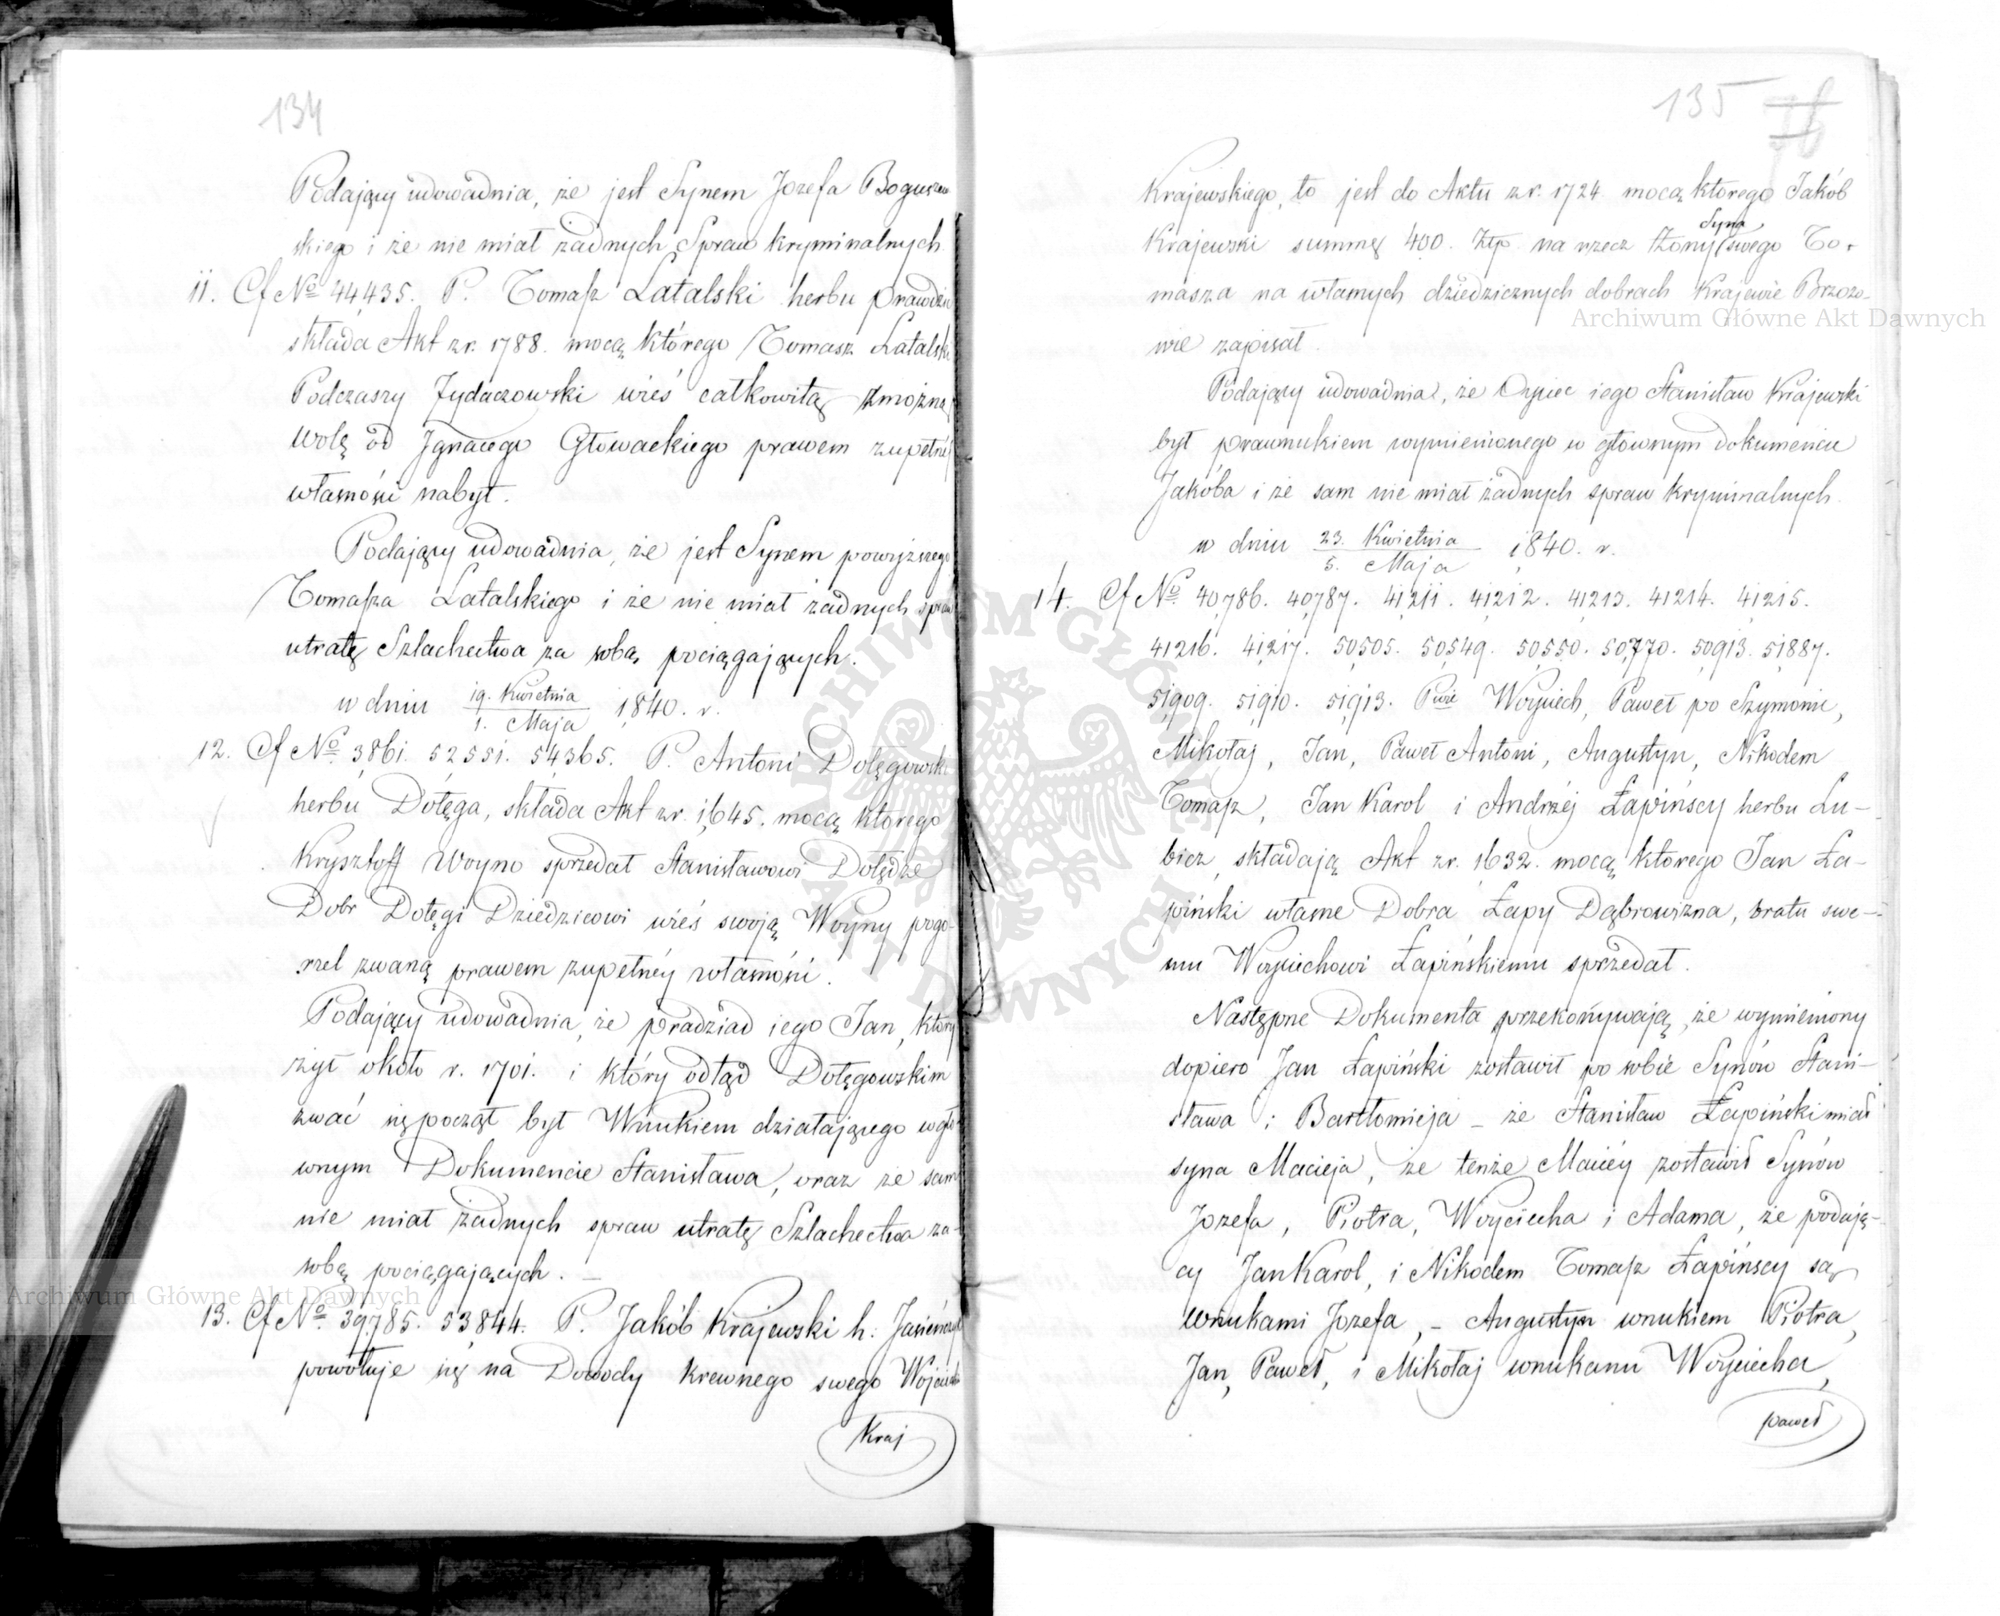 134
Podający udowadnia, że jest Synem Jozefa Boguszew
skiego i że nie miał żadnych Spraw kryminalnych
11. Cf No 44,435. P. Tomasz Latalski herbu prawdzic
składa Akt z r. 1788. mocą którego Tomasz Latalski
Podczaszy Żydaczowski wieś całkowitą Zmożną
wolę od Ignacego Głowackiego prawem zupełnéj
własności nabył.
Podający udowadnia, że jest Synem powyższego
Tomasza Latalskiego i że nie miał żadnych spraw
utratę Szlachectwa za sobą pociągających.
w dniu 19. Kwietnia / 1. Maja 1840. r.
12. Cf No 3861. 52551. 54365. P. Antoni Dołęgowski
herbu Dołęga, składa Akt z r. 1645. mocą którego
Krysztoff Woyno sprzedał Stanisławowi Dołędze
Dobr Dołęgi Dziedzicowi wieś swoją Woyny pogo-
rzel zwaną prawem zupełnéy własności.
Podający udowadnia, że pradziad iego Jan, który
żył około r. 1701. i który odtąd Dołęgowskim
zwać się począł był Wnukiem działającego w głó
wnym Dokumencie Stanisława, oraz że sam
nie miał żadnych spraw utratę Szlachectwa za-
sobą pociągających. –
13. Cf No. 39,785. 53844. P. Jakób Krajewski h: Jasieńczyk
powołuje się na Dowody krewnego swego Wojciecha
Kraj
135
Krajewskiego, to jest do Aktu z r. 1724. mocą którego Jakób
Syna
Krajewski summę 400. Złp na rzecz Żony swego To-
masza na własnych dziedzicznych dobrach Krajewie Brzozo-
wie zapisał.
Podający udowadnia, że Oyciec iego Stanisław Krajewski
był prawnukiem wymienionego w głownym dokumencie
Jakóba i że sam nie miał żadnych spraw kryminalnych.
w dniu 23. Kwietnia / 5. Maja 1840. r.
14. Cf No. 40,786. 40,787. 41,211. 41212. 41213. 41214. 41215.
41216. 41,217. 50505. 50549. 50550. 50,770. 50913. 51887.
51909. 51910. 51913. Pwie Woyciech, Paweł po Szymonie,
Mikołaj, Jan, Paweł Antoni, Augustyn, Nikodem
Tomasz, Jan Karol i Andrzéj Łapińscy herbu Lu-
bicz, składają Akt z r. 1632. mocą którego Jan Ła-
piński własne Dobra Łapy Dąbrowizna, bratu swe-
mu Woyciechowi Łapińskiemu sprzedał.
Następne Dokumenta przekonywają, że wymieniony
dopiero Jan Łapiński zostawił po sobie Synów Stani-
sława i Bartłomieja – że Stanisław Łapiński miał
syna Macieja, że tenże Maciéy zostawił Synów
Jozefa, Piotra, Woyciecha i Adama, że podają-
cy Jan Karol, i Nikodem Tomasz Łapińscy są
wnukami Jozefa, – Augustyn wnukiem Piotra,
Jan, Paweł, i Mikołaj wnukami Woyciecha,
paweł
Archiwum Główne Akt Dawnych
Archiwum Główne Akt Dawnych
ARCHIWUM GŁÓWNE AKT DAWNYCH